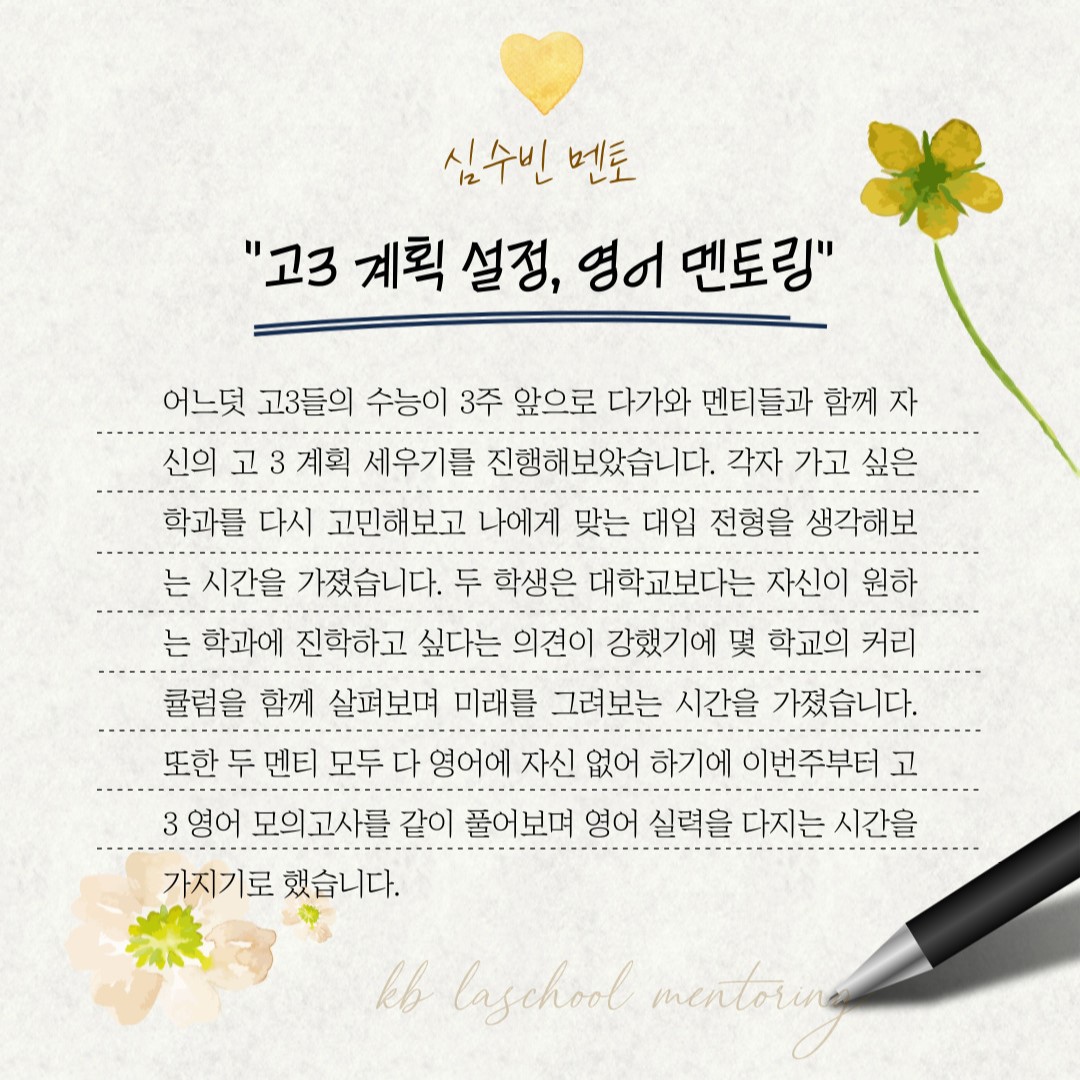 심수빈 멘토
"고3 계획 설정, 영어 멘토링"
어느덧 고3들의 수능이 3주 앞으로 다가와 멘티들과 함께 자
신의 고 3 계획 세우기를 진행해보았습니다. 각자 가고 싶은
학과를 다시 고민해보고 나에게 맞는 대입 전형을 생각해보
는 시간을 가졌습니다. 두 학생은 대학교보다는 자신이 원하
는 학과에 진학하고 싶다는 의견이 강했기에 몇 학교의 커리
큘럼을 함께 살펴보며 미래를 그려보는 시간을 가졌습니다.
또한 두 멘티 모두 다 영어에 자신 없어 하기에 이번주부터 고
3 영어 모의고사를 같이 풀어보며 영어 실력을 다지는 시간을
가지기로 했습니다.
kb laschool mentoring